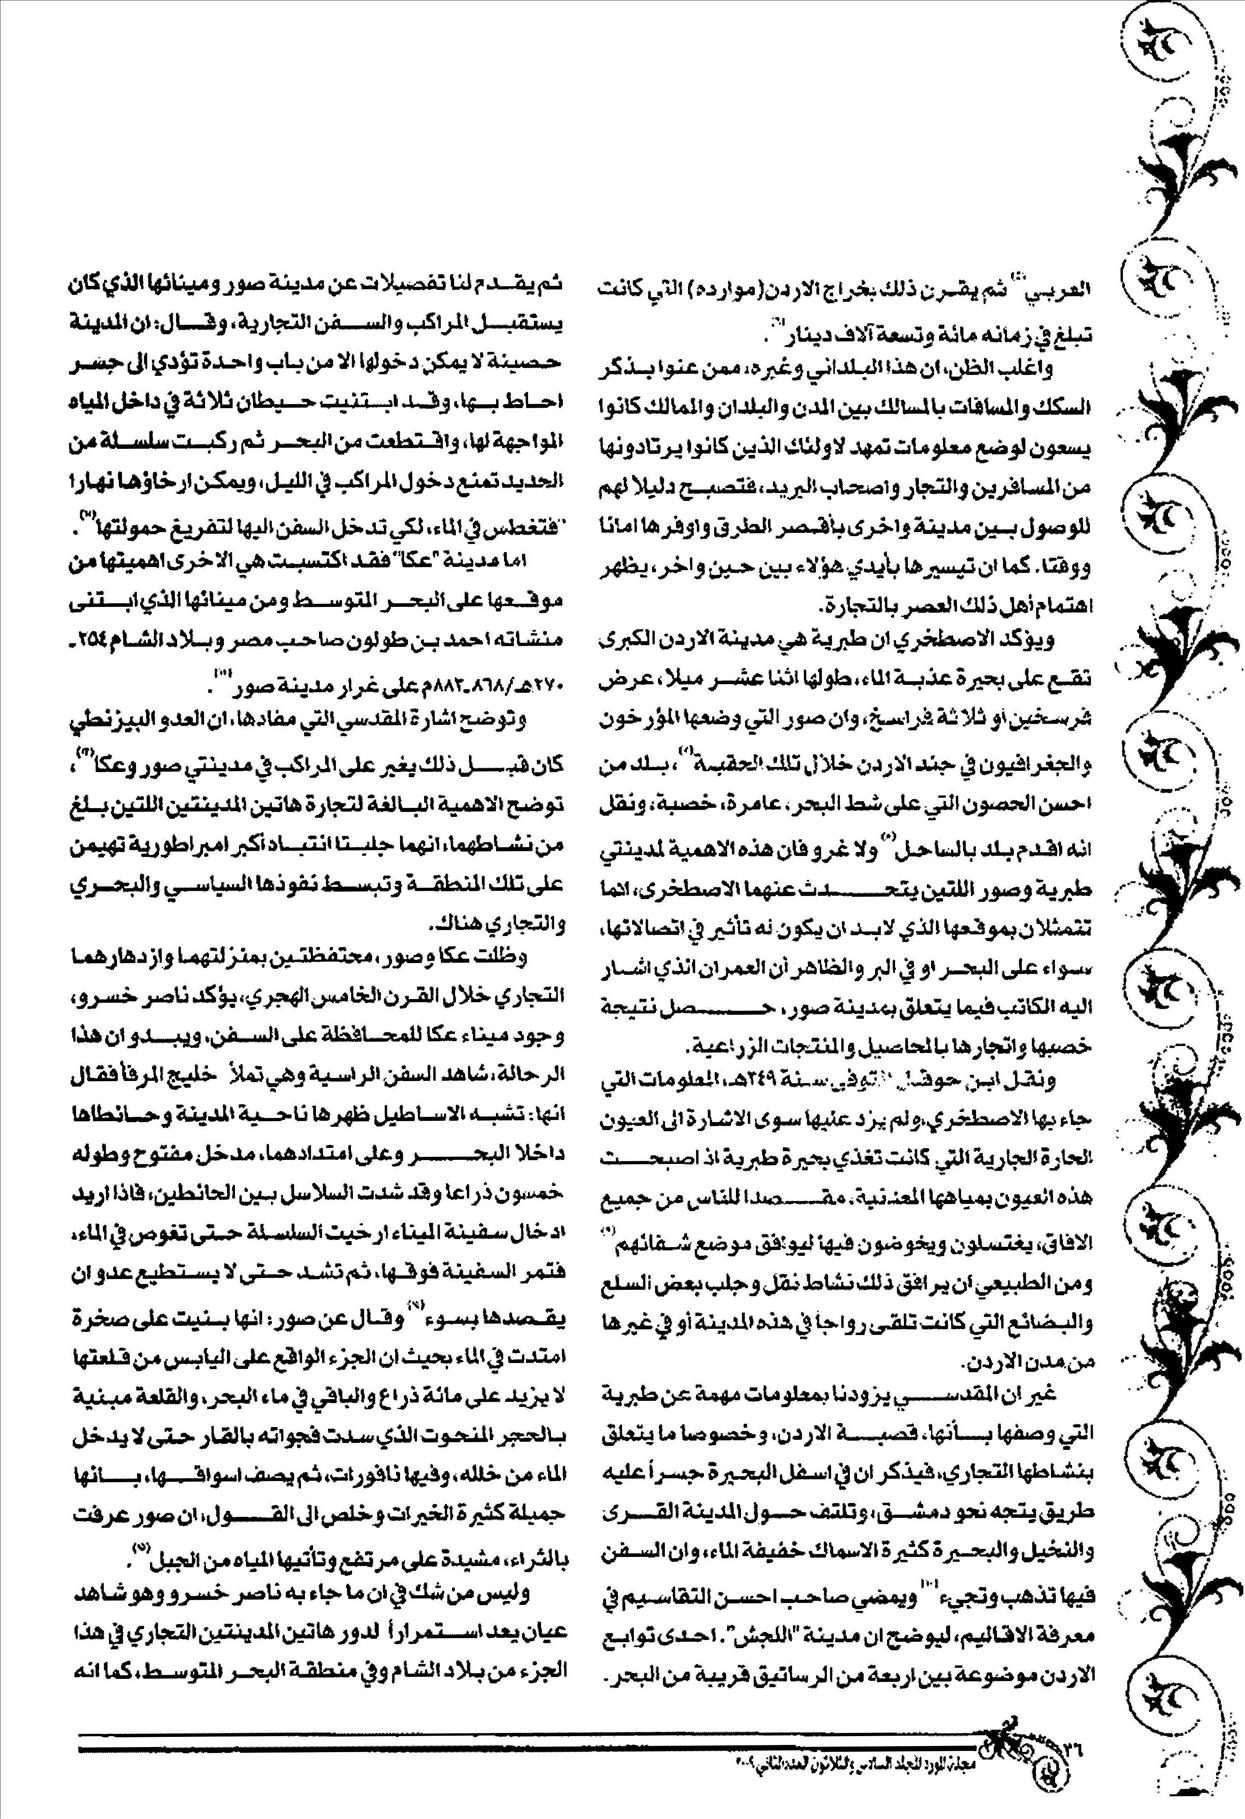 العربي(٥) ثم يقرن ذلك بخراج الاردن(موارده) التي كانت
تبلغ في زمانه مائة وتسعة آلاف دينار(٦).
واغلب الظن، ان هذا البلداني وغيره، ممن عنوا بذكر
السكك والمسافات بالمسالك بين المدن والبلدان والممالك كانوا
يسعون لوضع معلومات تمهد لاولئك الذين كانوا يرتادونها
من المسافرين والتجار واصحاب البريد، فتصبح دليلا لهم
للوصول بين مدينة واخرى بأقصر الطرق واوفرها امانا
ووقتا. كما ان تيسيرها بأيدي هؤلاء بين حين واخر، يظهر
اهتمام أهل ذلك العصر بالتجارة.
ويؤكد الاصطخري ان طبرية هي مدينة الاردن الكبرى
تقع على بحيرة عذبة الماء، طولها اثنا عشر ميلا، عرض
فرسخين أو ثلاثة فراسخ، وان صور التي وضعها المؤرخون
والجغرافيون في جند الاردن خلال تلك الحقبة، بلد من
احسن الحصون التي على شط البحر، عامرة، خصبة، ونقل
انه اقدم بلد بالساحل ولا غرو فان هذه الاهمية لمدينتي
طبرية وصور اللتين يتحدث عنهما الاصطخري، انما
تتمثلان بموقعها الذي لابد ان يكون له تأثير في اتصالاتها،
سواء على البحر او في البر والظاهر أن العمران الذي اشار
اليه الكاتب فيما يتعلق بمدينة صور، حصل نتيجة
خصبها واتجارها بالمحاصيل والمنتجات الزراعية.
ونقل ابن حوقل المتوفى سنة ٣٤٩هـ، المعلومات التي
جاء بها الاصطخري، ولم يزد عليها سوى الاشارة الى العيون
الحارة الجارية التي كانت تغذي بحيرة طبرية اذ اصبحت
هذه العيون بمياهها المعدنية، مقصدا للناس من جميع
الافاق، يغتسلون ويخوضون فيها ليوافق موضع شفائهم(٩)
ومن الطبيعي ان يرافق ذلك نشاط نقل وجلب بعض السلع
والبضائع التي كانت تلقى رواجاً في هذه المدينة أو في غيرها
من مدن الاردن.
غير ان المقدسي يزودنا بمعلومات مهمة عن طبرية
التي وصفها بأنها، قصبة الاردن، وخصوصا ما يتعلق
بنشاطها التجاري، فيذكر ان في اسفل البحيرة جسراً عليه
طريق يتجه نحو دمشق، وتلتف حول المدينة القرى
والنخيل والبحيرة كثيرة الاسماك خفيفة الماء، وان السفن
فيها تذهب وتجيء(١٠) ويمضي صاحب احسن التقاسيم في
معرفة الاقاليم، ليوضح ان مدينة "اللجش". احدى توابع
الاردن موضوعة بين اربعة من الرساتيق قريبة من البحر.
ثم يقدم لنا تفصيلات عن مدينة صور ومينائها الذي كان
يستقبل المراكب والسفن التجارية، وقال: ان المدينة
حصينة لا يمكن دخولها الا من باب واحدة تؤدي الى جسر
احاط بها، وقد ابتنيت حيطان ثلاثة في داخل المياه
المواجهة لها، واقتطعت من البحر ثم ركبت سلسلة من
الحديد تمنع دخول المراكب في الليل، ويمكن ارخاؤها نهارا
فتغطس في الماء، لكي تدخل السفن اليها لتفريغ حمولتها.
اما مدينة "عكا" فقد اكتسبت هي الاخرى اهميتها من
موقعها على البحر المتوسط ومن مينائها الذي ابتنى
منشاته احمد بن طولون صاحب مصر وبلاد الشام ٢٥٤-
٢٧٠هـ/٨٦٨-٨٨٣م على غرار مدينة صور.
وتوضح اشارة المقدسي التي مفادها، ان العدو البيزنطي
كان قبل ذلك يغير على المراكب في مدينتي صور وعكا،
توضح الاهمية البالغة لتجارة هاتين المدينتين اللتين بلغ
من نشاطهما، انهما جلبتا انتباه أكبر امبراطورية تهيمن
على تلك المنطقة وتبسط نفوذها السياسي والبحري
والتجاري هناك.
وظلت عكا وصور، محتفظتين بمنزلتهما وازدهارهما
التجاري خلال القرن الخامس الهجري، يؤكد ناصر خسرو،
وجود ميناء عكا للمحافظة على السفن، ويبدو ان هذا
الرحالة، شاهد السفن الراسية وهي تملأ خليج المرفأ فقال
انها: تشبه الاساطيل ظهرها ناحية المدينة وحائطاها
داخلا البحر وعلى امتدادهما، مدخل مفتوح وطوله
خمسون ذراعا وقد شدت السلاسل بين الحائطين، فاذا اريد
ادخال سفينة الميناء ارخيت السلسلة حتى تغوص في الماء،
فتمر السفينة فوقها، ثم تشد حتى لا يستطيع عدو ان
يقصدها بسوء وقال عن صور: انها بنيت على صخرة
امتدت في الماء بحيث ان الجزء الواقع على اليابس من قلعتها
لا يزيد على مائة ذراع والباقي في ماء البحر، والقلعة مبنية
بالحجر المنحوت الذي سدت فجواته بالقار حتى لا يدخل
الماء من خلله، وفيها نافورات، ثم يصف اسواقها، بانها
جميلة كثيرة الخيرات وخلص الى القول، ان صور عرفت
بالثراء، مشيدة على مرتفع وتأتيها المياه من الجبل.
وليس من شك في ان ما جاء به ناصر خسرو وهو شاهد
عيان يعد استمراراً لدور هاتين المدينتين التجاري في هذا
الجزء من بلاد الشام وفي منطقة البحر المتوسط، كما انه
٣٦
مجلة المورد المجلد السادس والثلاثون العدد الثاني ٢٠٠٩